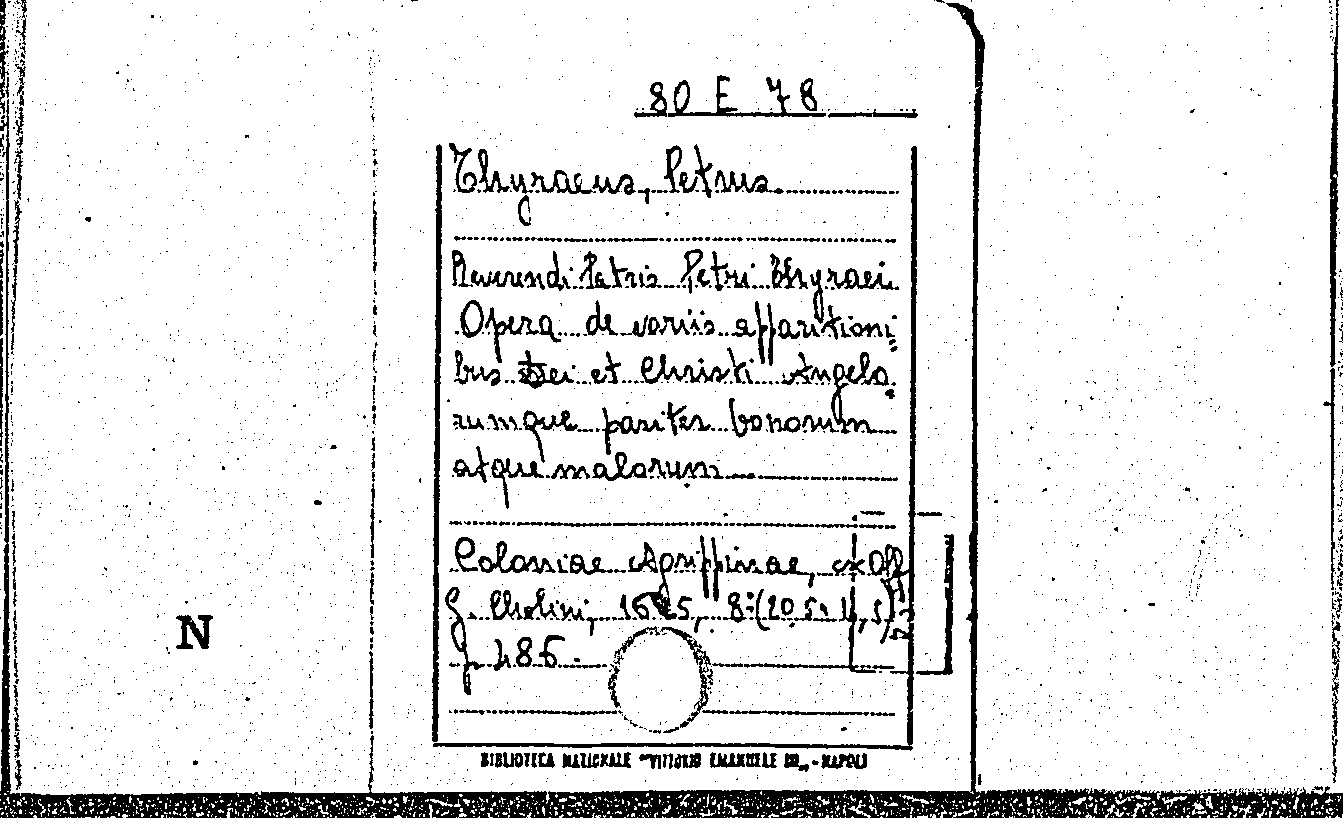 80 E 78
Thyraeus, Petrus.
Reverendi Patris Petri Thyraei
Opera de variis apparitioni=
bus Dei et Christi Angelo.
rumque pariter bonorum
atque malorum
Coloniae Agrippinae, ex Off
G. Cholini, 1625, 8º (20,5x11,5)
p. 486.
N
BIBLIOTECA NAZIONALE "VITTORIO EMANUELE III" - NAPOLI